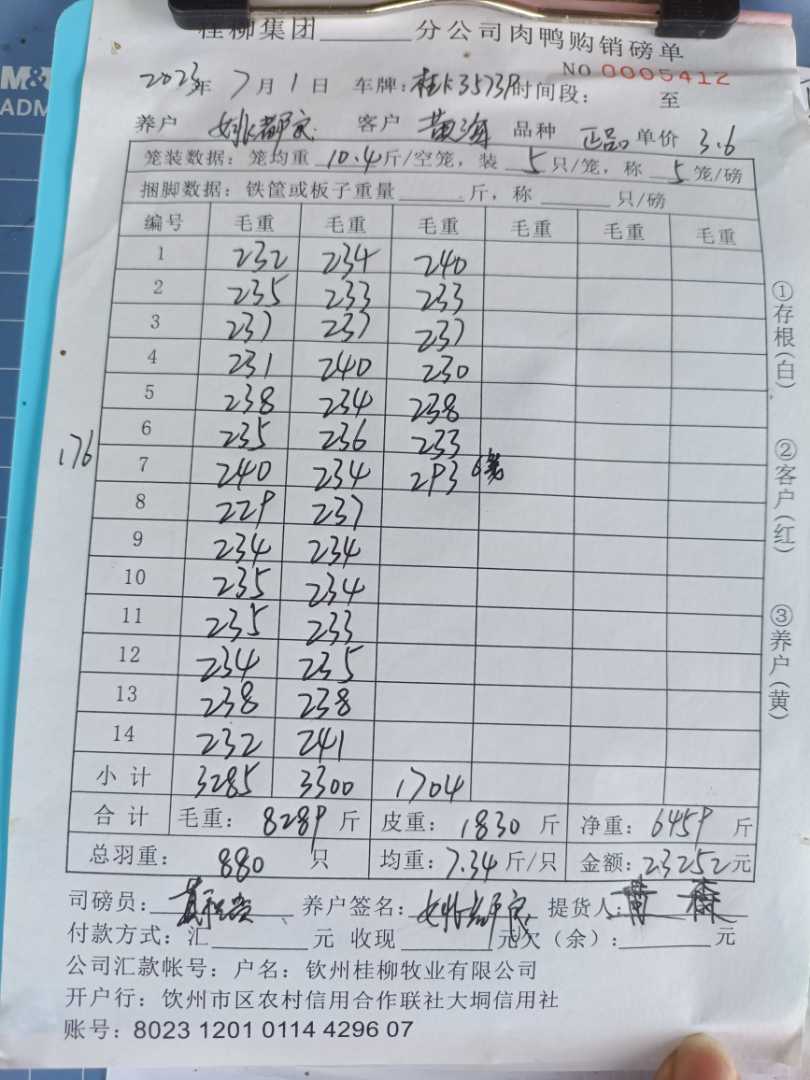 桂柳集团 分公司肉鸭购销磅单
NO 0005412
2023年 7月 1日 车牌:桂K3573P时间段: 至
养户 姚都家 客户 黄海 品种 正品 单价 3.6
笼装数据:笼均重 10.4斤/空笼,装 5只/笼,称 5笼/磅
捆脚数据:铁筐或板子重量 斤,称 只/磅
编号 毛重 毛重 毛重 毛重 毛重 毛重
1 232 234 240
2 235 233 233
3 237 237 237
4 231 240 230
5 238 234 238
6 235 236 233
176
7 240 234 293 6笼
8 229 237
9 234 234
10 235 234
11 235 233
12 234 235
13 238 238
14 232 241
小计 3285 3300 1704
合计 毛重: 8289 斤 皮重: 1830 斤 净重: 6459 斤
总羽重: 880 只 均重:7.34斤/只 金额:23252元
司磅员: 养户签名:姚都家 提货人:
付款方式:汇 元 收现 元欠(余): 元
公司汇款帐号:户名:钦州桂柳牧业有限公司
开户行:饮州市区农村信用合作联社大垌信用社
账号:8023 1201 0114 4296 07
①存根(白)
②客户(红)
③养户(黄)
M&
ADM